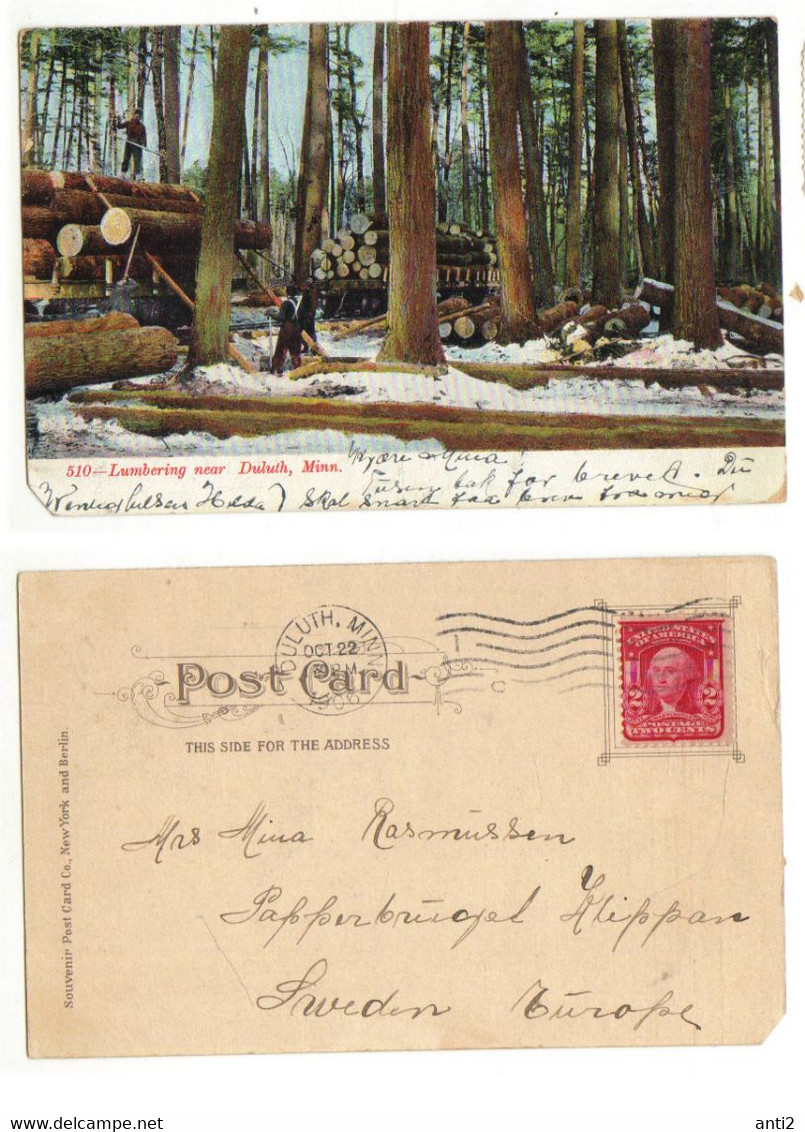 510—Lumbering near Duluth, Minn.
Kjære Mina!
Tusen tak for brevet. Du
skal snart faa brev fra mig
DULUTH, MINN.
OCT 22
PM
1906
Post Card
THIS SIDE FOR THE ADDRESS
UNITED STATES
OF AMERICA
2 2
POSTAGE
TWO CENTS
Souvenir Post Card Co., New York and Berlin.
Mrs Mina Rasmussen
Papperbruget Klippan
Sweden Europe
Delcampe.net
anti2